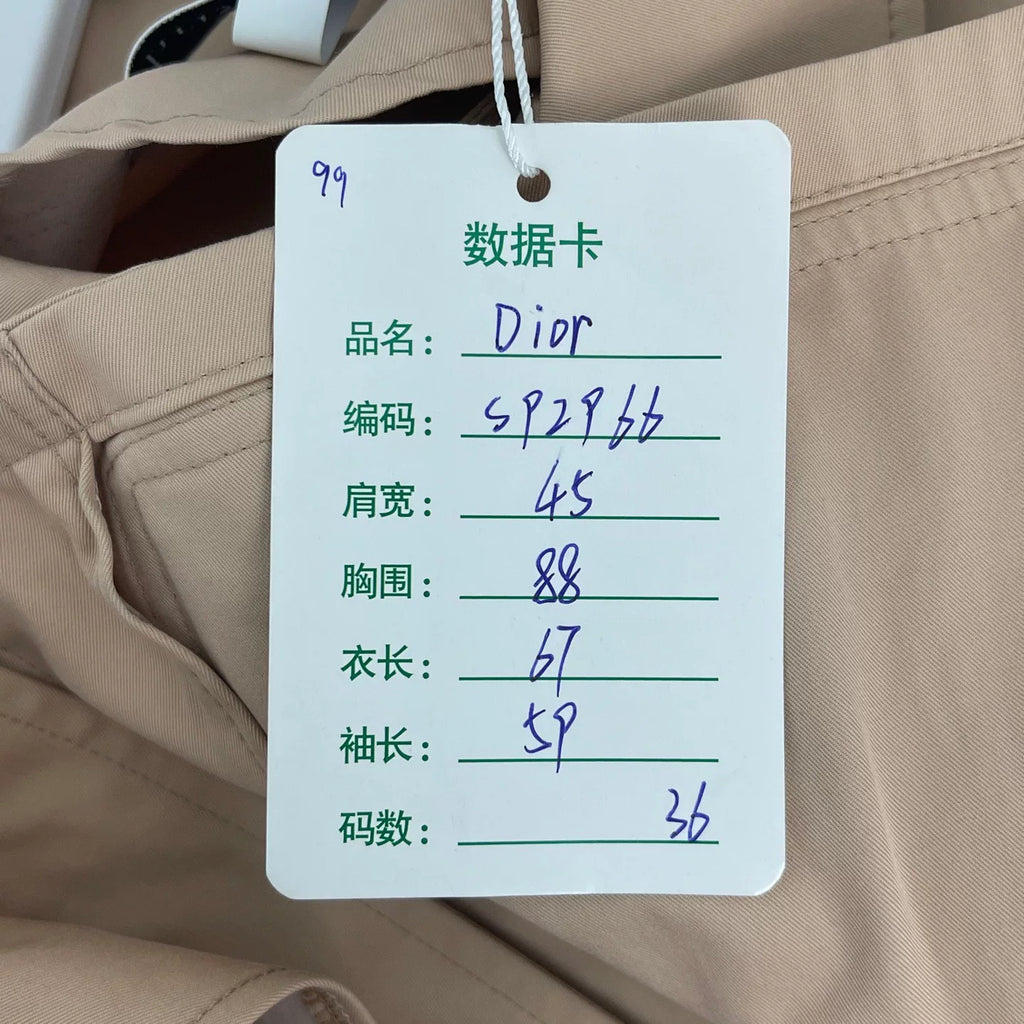 99
数据卡
品名: Dior
编码: SP2P66
肩宽: 45
胸围: 88
衣长: 67
袖长: 59
码数: 36